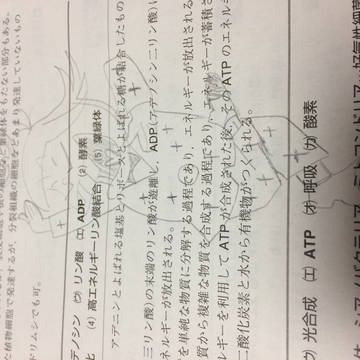 細胞など葉緑体をもたない部分もある。
植物細胞で発達するが，分裂組織の細胞などあまり発達していないもの
ドリムシでも可。
デノシン (ウ) リン酸 (エ) ADP (2) 酵素
(4) 高エネルギーリン酸結合 (5) 葉緑体
アデニンとよばれる塩基とリボースとよばれる糖が結合したもの
三リン酸)の末端のリン酸が遊離し，ADP(アデノシン二リン酸)に
ルギーが放出される。
を単純な物質に分解する過程であり，エネルギーが放出される
質から複雑な物質を合成する過程であり，エネルギーが蓄積さ
ルギーを利用してATPが合成された後，そのATPのエネルギ
二酸化炭素と水から有機物がつくられる。
(ウ) 光合成 (エ) ATP (オ) 呼吸 (カ) 酸素